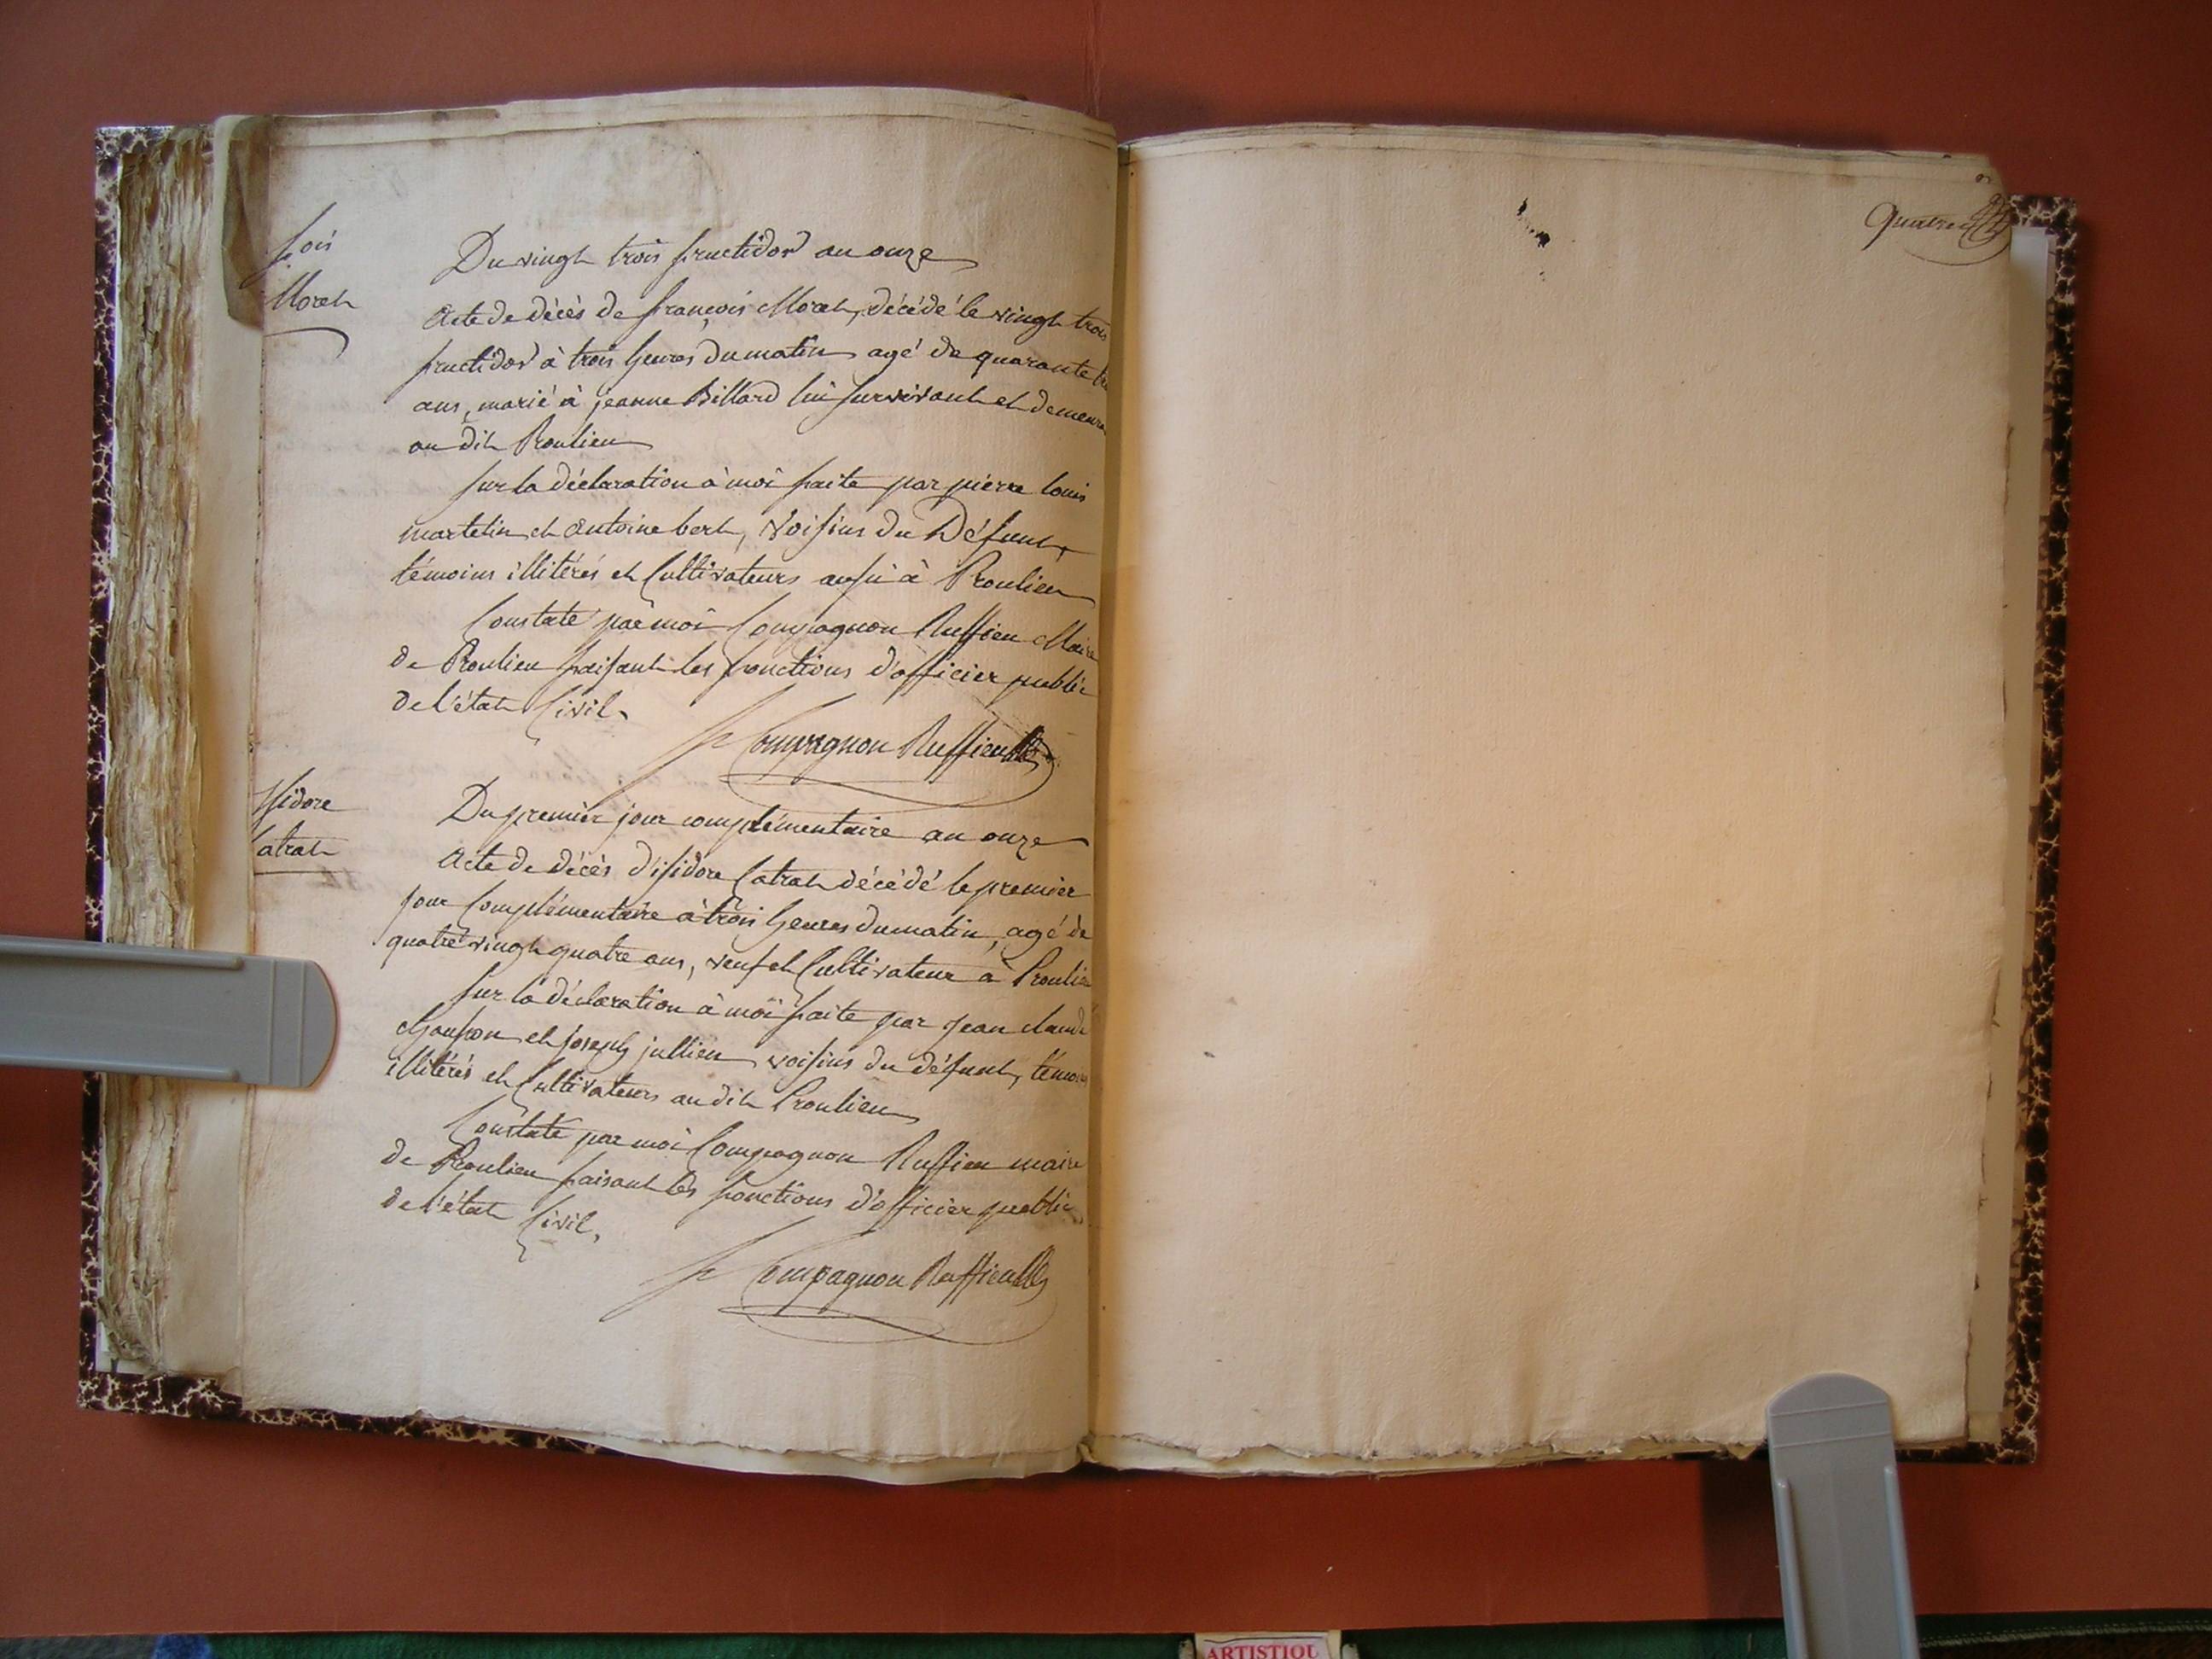 fois
Morel
Du vingt trois fructidor an onze
Acte de décès de françois Morel, décédé le vingt trois
fructidor à trois heures du matin agé de quarante
ans, marié à jeanne Billard lui survivant et demeura
au dit Proulieu
sur la déclaration à moi faite par pierre louis
martelin et antoine bert, voisins du Défunt,
témoins illitérés et Cultivateurs aussi à Proulieu
Constaté par moi Compagnon Ruffieu Maire
de Proulieu faisant les fonctions d'officier public
de l'état Civil.
Compagnon Ruffieu
Isidore
Catrat
Du premier jour complémentaire an onze
Acte de décès d'isidore Catrat décédé le premier
jour Complémentaire à trois heures du matin, agé de
quatre vingt quatre ans, veuf et Cultivateur à Proulieu
sur la déclaration à moi faite par jean claude
et joseph jullien voisins du défunt, témoins
illitérés et Cultivateurs au dit Proulieu
Constaté par moi Compagnon Ruffieu maire
de Proulieu faisant les fonctions d'officier public
de l'état Civil.
Compagnon Ruffieu
ARTISTIQU